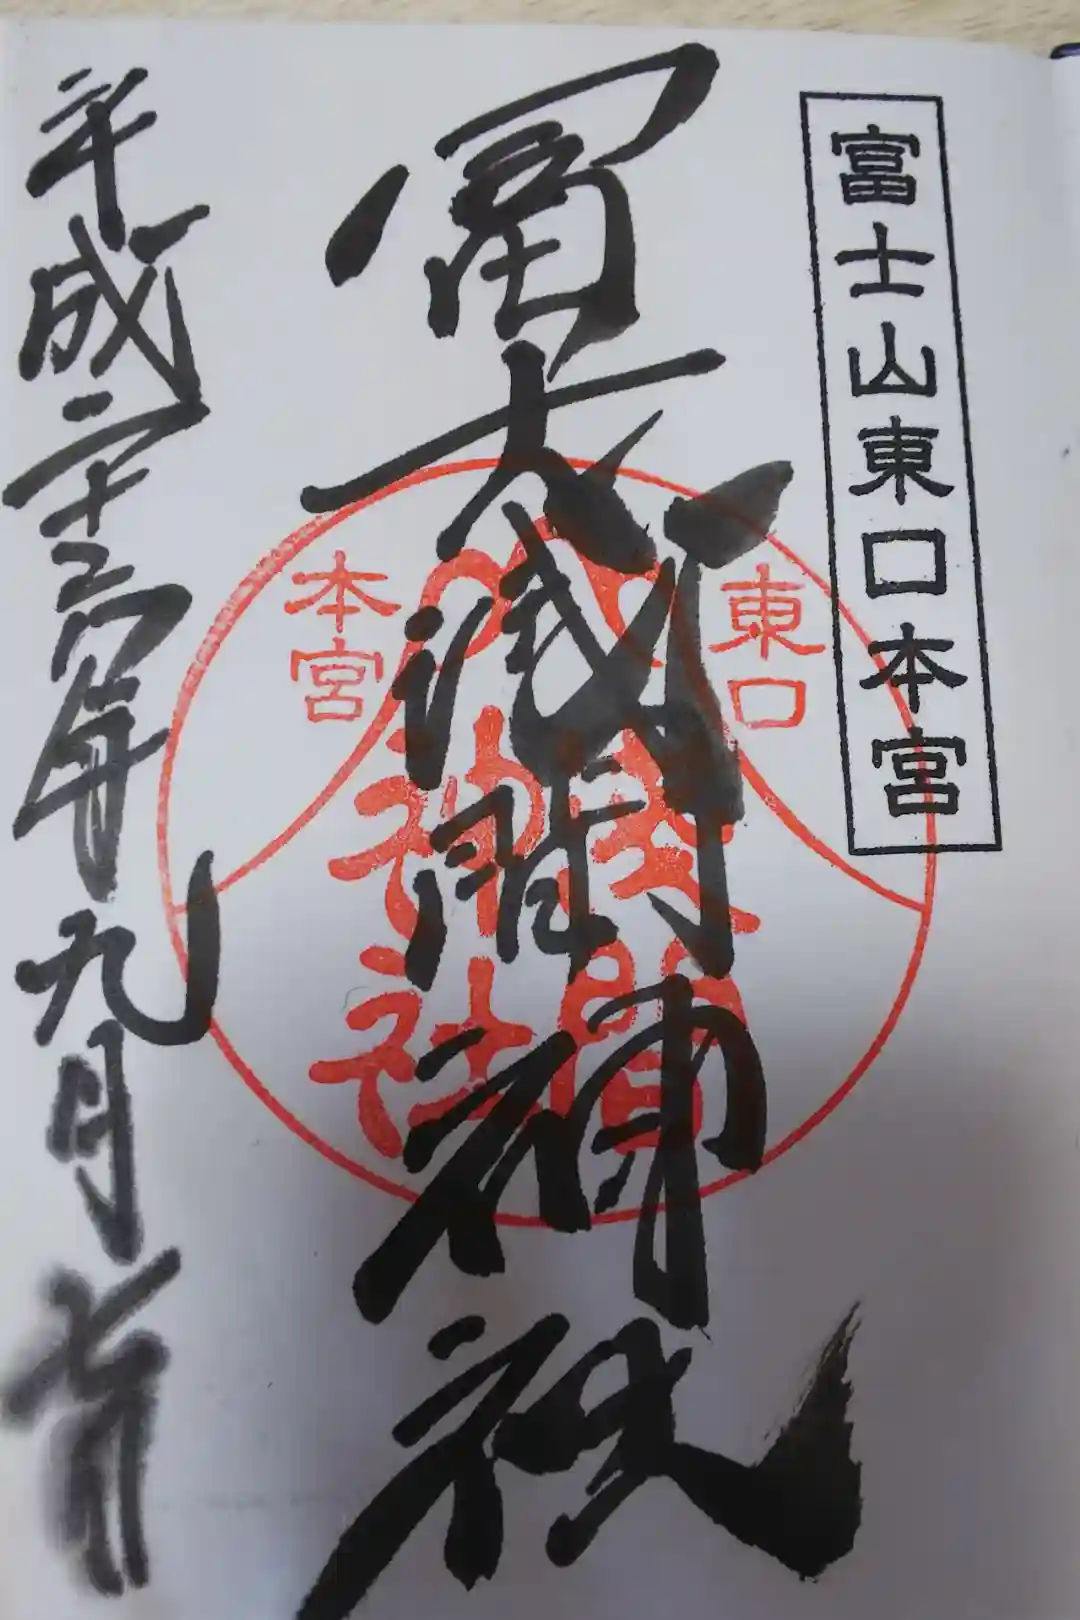 富士山東口本宮
冨士浅間神社
東口
本宮
浅間
神社
平成二十三年九月